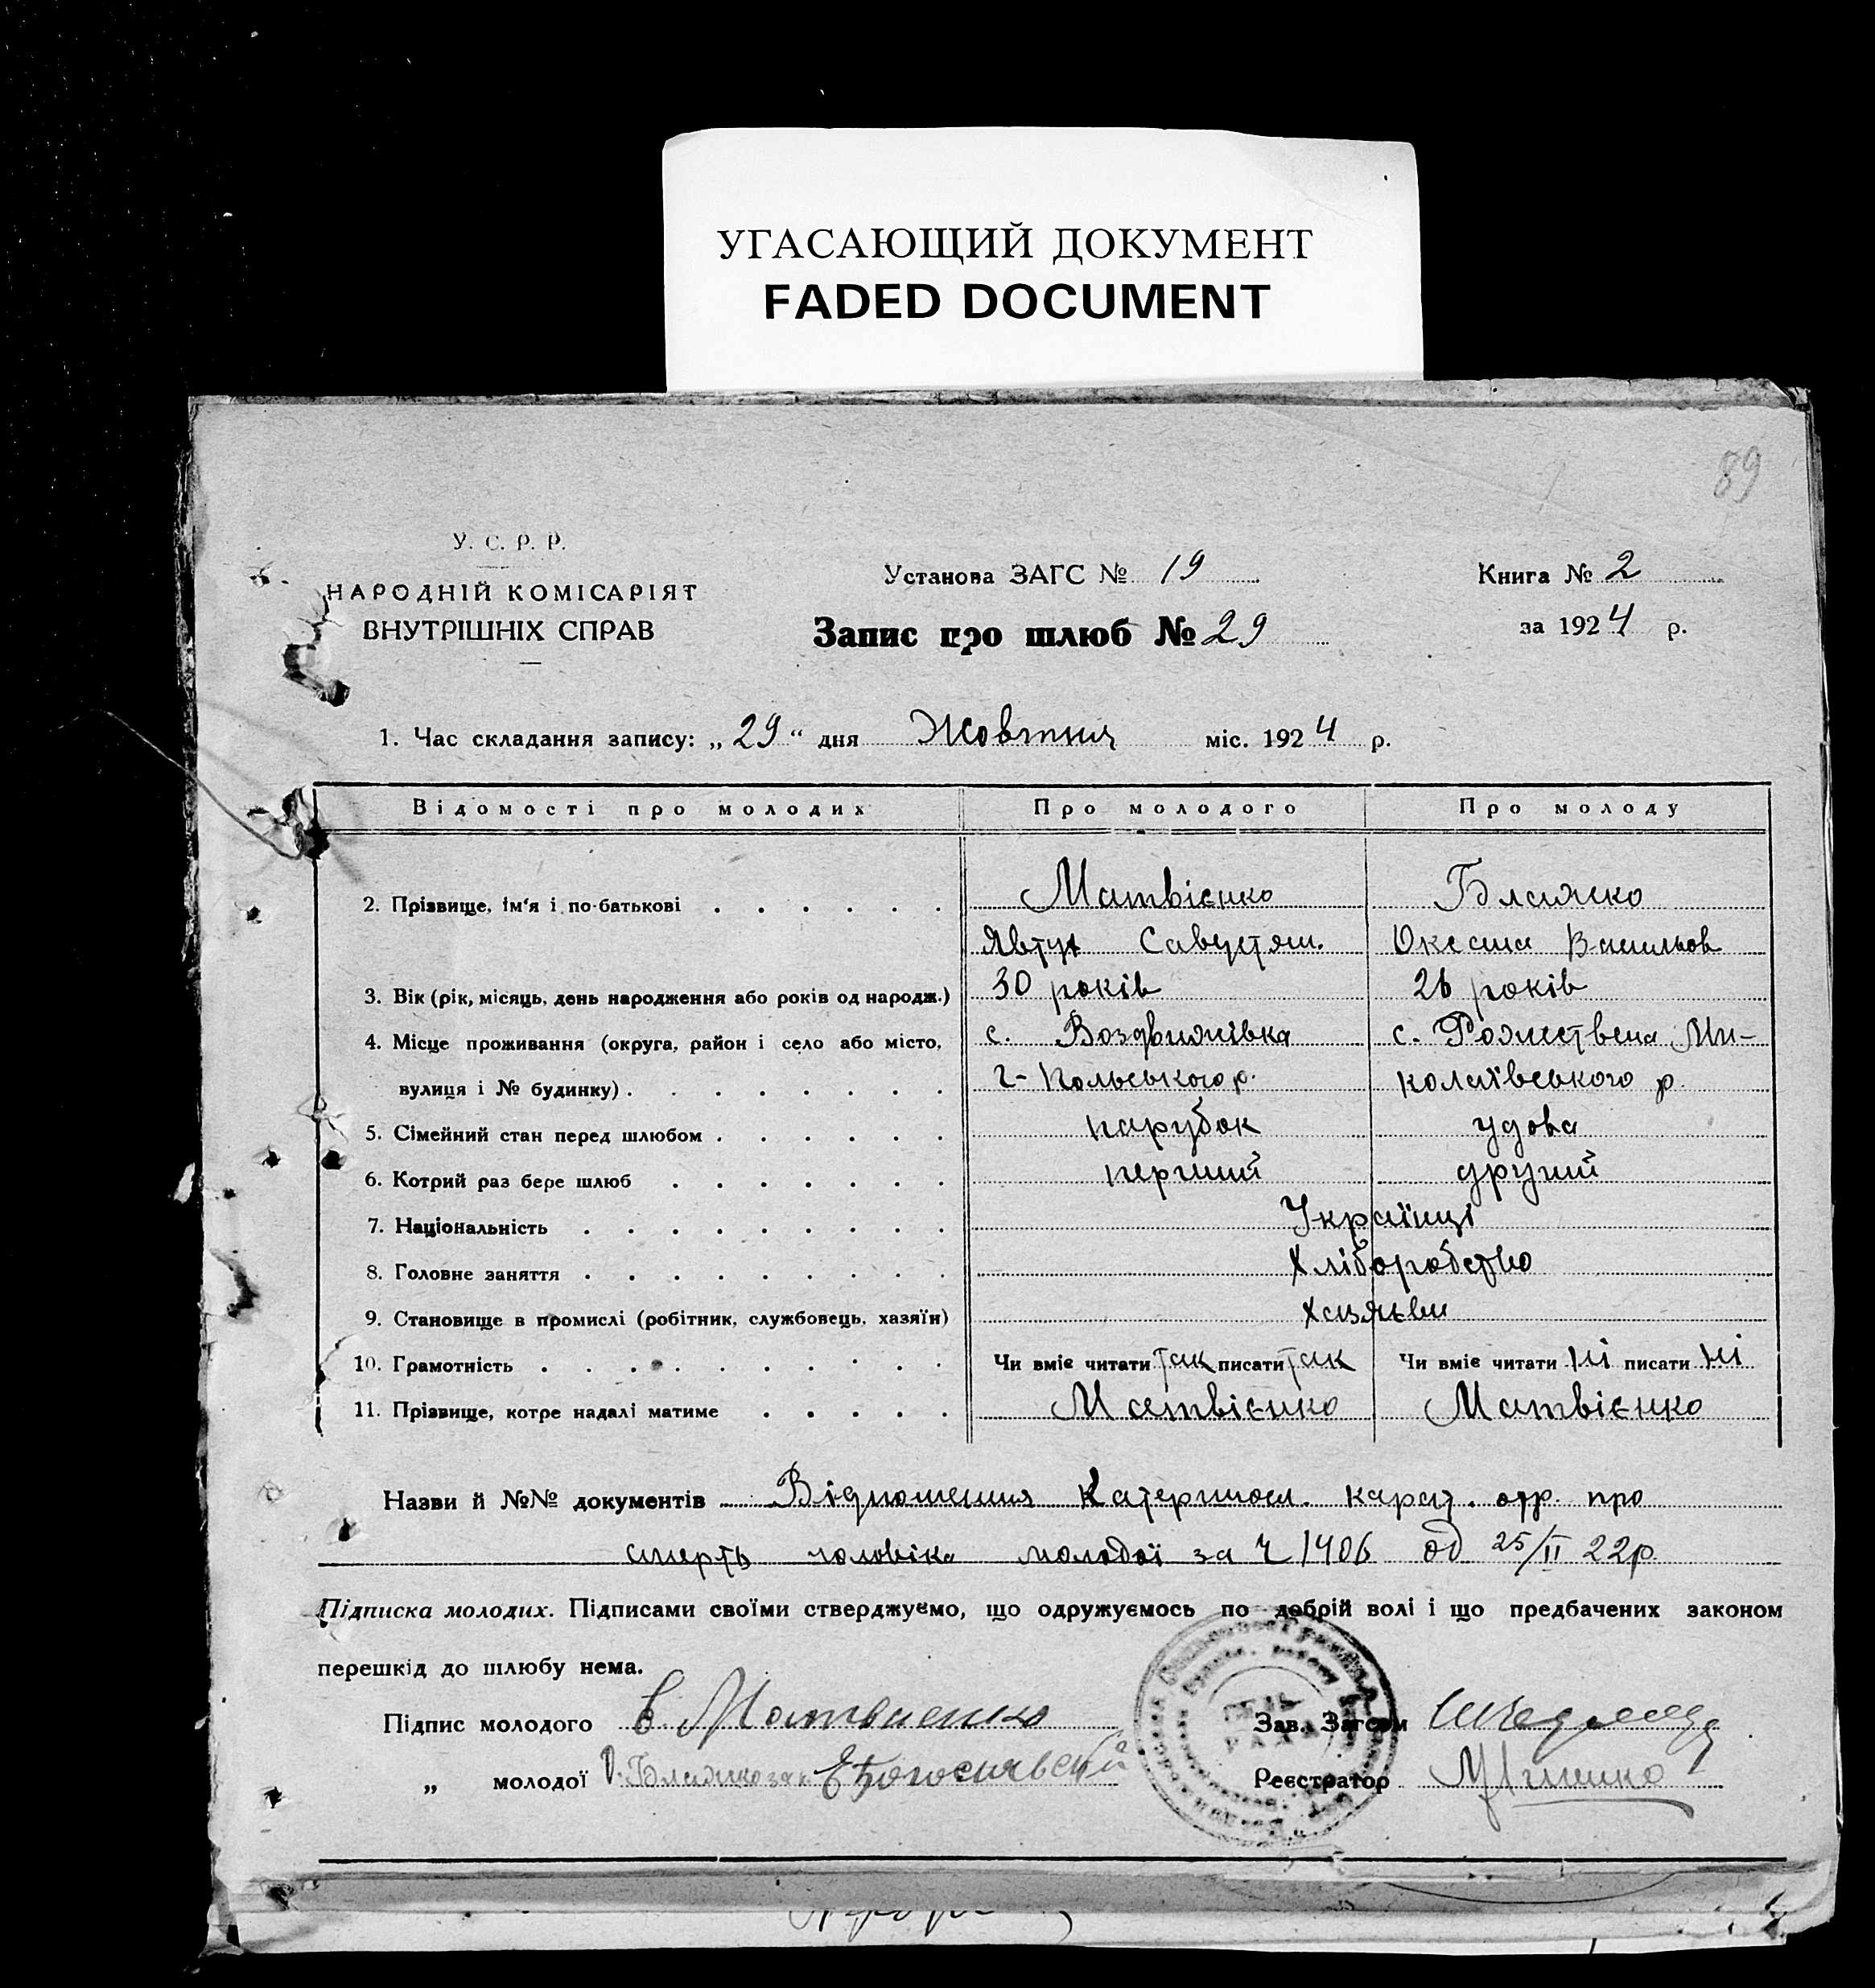 УГАСАЮЩИЙ ДОКУМЕНТ
FADED DOCUMENT
89
У. С. Р. Р.
НАРОДНІЙ КОМІСАРІЯТ
ВНУТРІШНІХ СПРАВ
Установа ЗАГС № 19
Запис про шлюб № 29
Книга № 2
за 1924 р.
1. Час складання запису: „29“ дня Жовтня міс. 1924 р.
Відомості про молодих Про молодого Про молоду
2. Прізвище, ім'я і по-батькові Матвієнко Бланжко
Явтух Савустян. Оксана Васильов
3. Вік (рік, місяць, день народження або років од народж.) 30 років 26 років
4. Місце проживання (округа, район і село або місто, с. Воздвижівка с. Рожествена Ми-
вулиця і № будинку) г-Польського р. колаївського р.
5. Сімейний стан перед шлюбом парубок удова
6. Котрий раз бере шлюб перший другий
7. Національність Українці
8. Головне заняття Хліборобство
9. Становище в промислі (робітник, службовець, хазяїн) Хазяьви
10. Грамотність Чи вміє читати так писати так Чи вміє читати ні писати ні
11. Прізвище, котре надалі матиме Матвієнко Матвієнко
Назви й №№ документів Відношення Катериносл. карат. отр. про
смерть чоловіка молодої за Ч 1406 од 25/II 22р.
Підписка молодих. Підписами своїми стверджуємо, що одружуємось по добрій волі і що предбачених законом
перешкід до шлюбу нема.
Підпис молодого Матвиенко Зав. Загсом
„ молодої Реєстратор